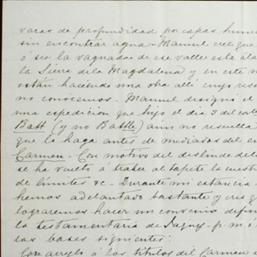 varas de profundidad por capas hume
sin encontrar agua - Manuel cree que
ó sea la vaguada de ese valle está
la Sierra de la Magdalena y en este
están haciendo una obra allí cuyo
no conocemos. - Manuel designó el
una expedición que hizo el dia 3 del
Batt (y no Battle) aún no resulta
que lo haga antes de mediados del
Carmen. - Con motivo del deslinde de
se ha vuelto á traher al tapete la cuest
de límites &c - Durante mi estancia
hemos adelantado bastante y creo q
lograremos hacer un convenio defin
la testamentaria de p. m.
sas bases siguientes:
Con arreglo á los títulos del Carmen